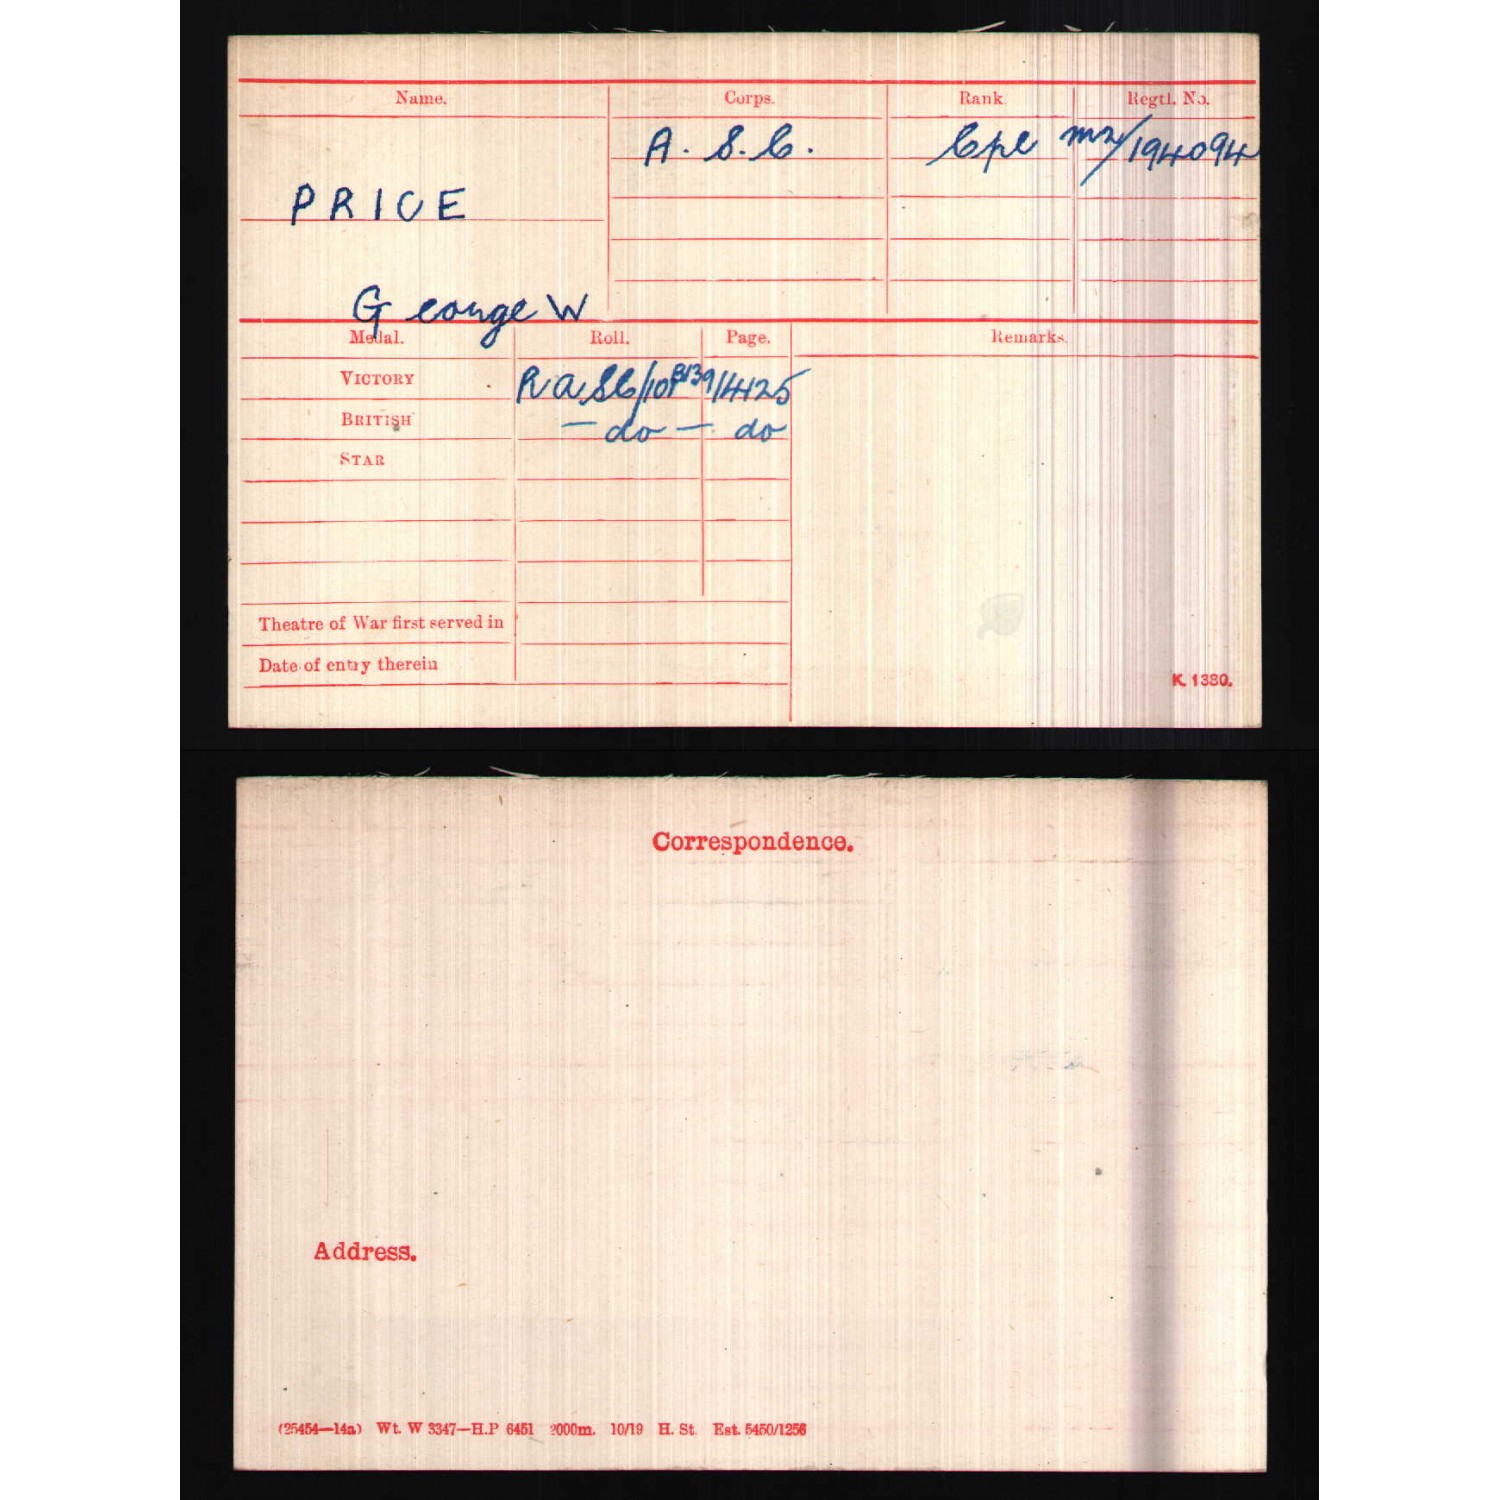 Name. Corps. Rank Regtl. No.
A. S. C. Cpl M2/194094
PRICE
George W
Medal. Roll. Page. Remarks.
VICTORY RASC/101B139 14425
BRITISH — do — do
STAR
Theatre of War first served in
Date of entry therein
K. 1380.
Correspondence.
Address.
(25454—14a) Wt. W 3347—H.P 6451 2000m. 10/19 H. St. Est. 5450/1256